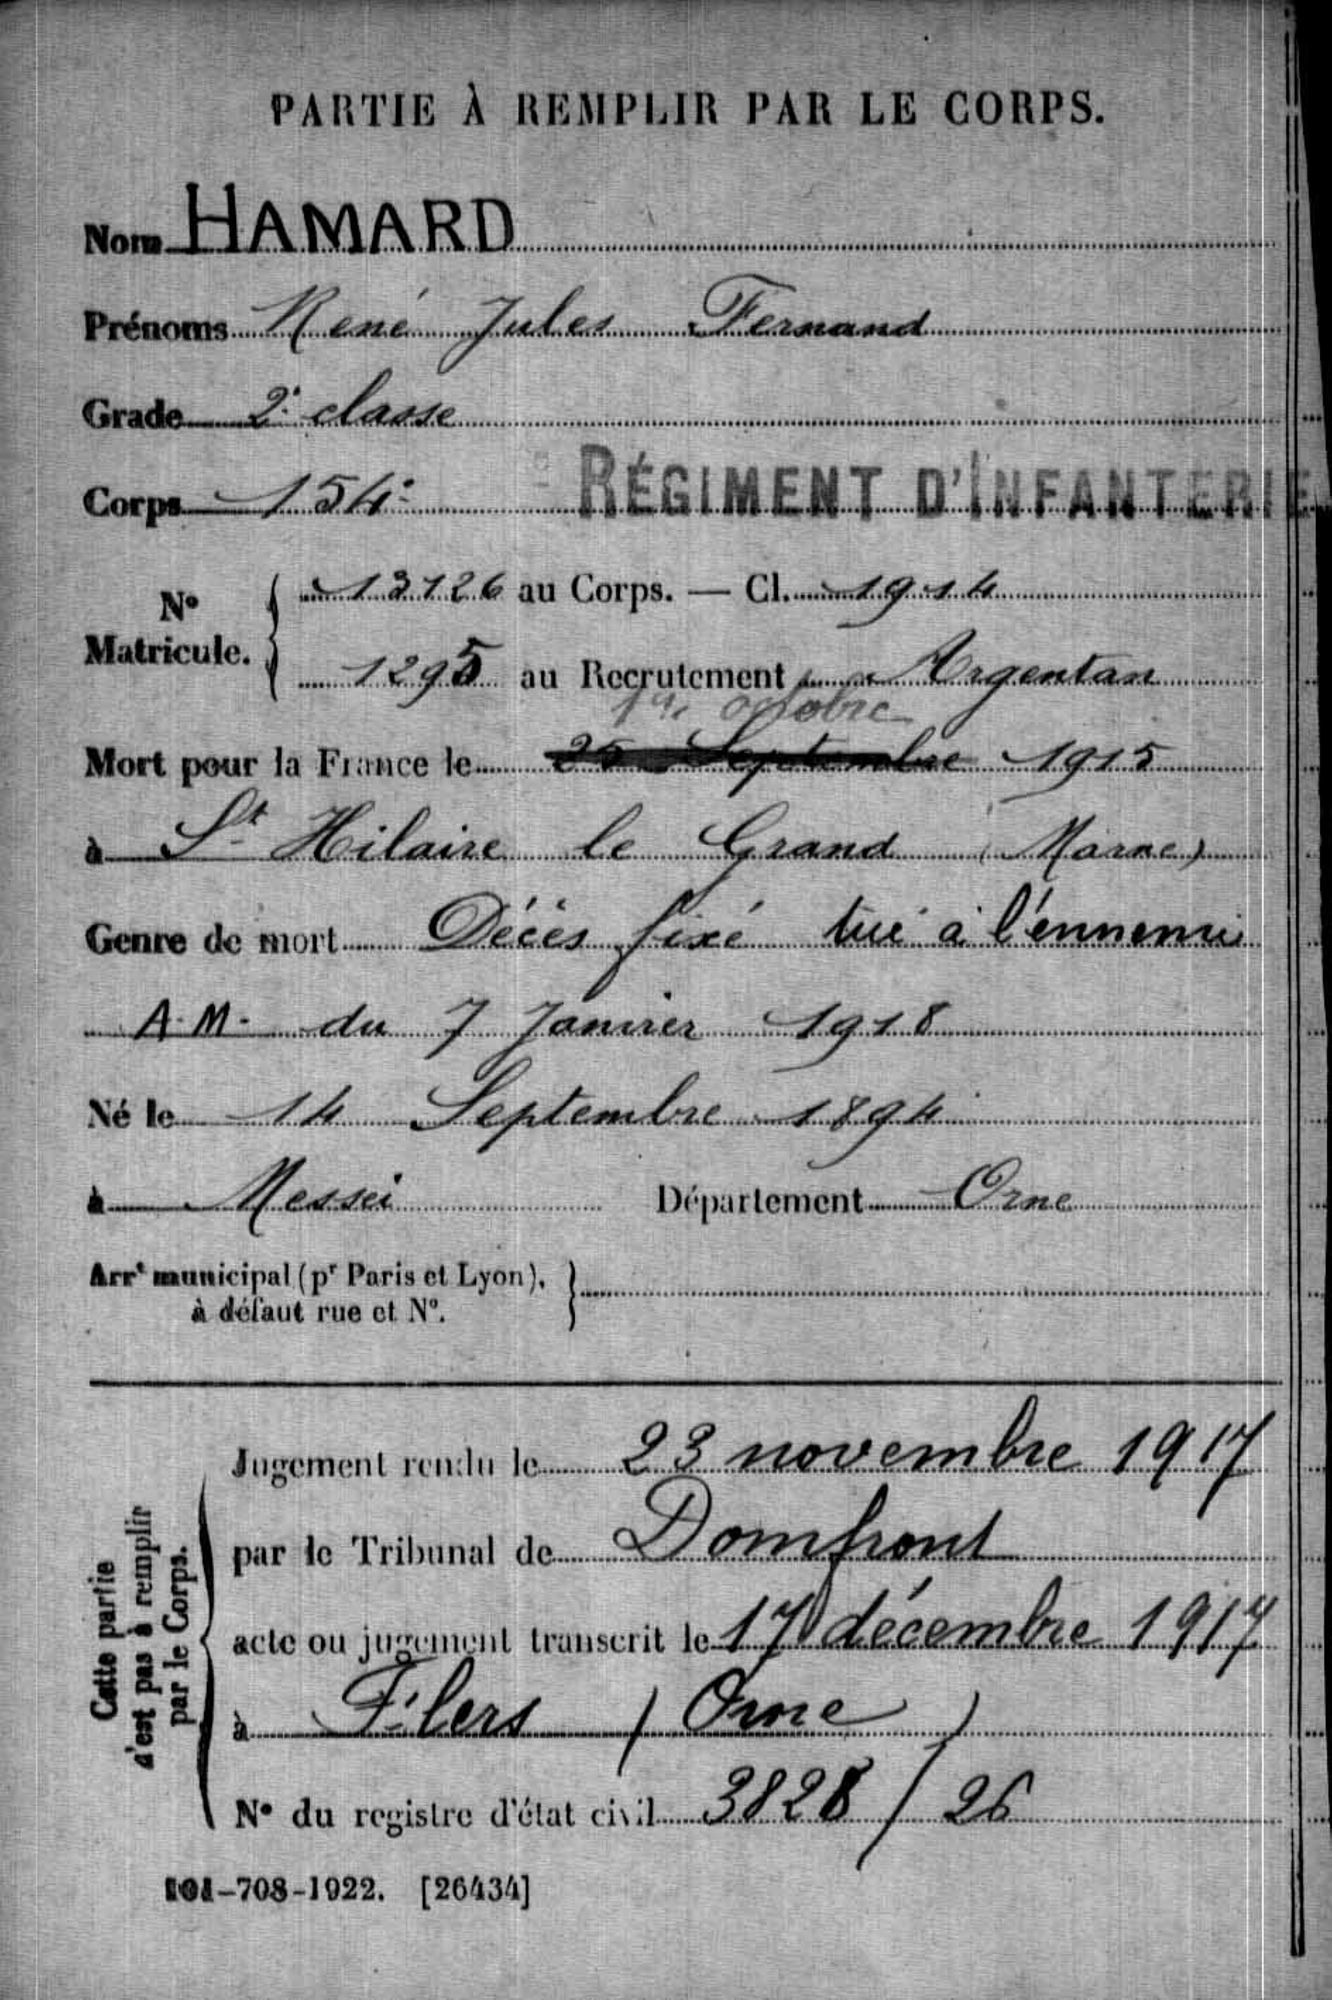 PARTIE À REMPLIR PAR LE CORPS.
Nom HAMARD
Prénoms René Jules Fernand
Grade 2e classe
Corps 154e RÉGIMENT D'INFANTERIE
N° Matricule. { 13126 au Corps. — Cl. 1914
1295 au Recrutement Argentan
1er octobre
Mort pour la France le 25 Septembre 1915
à St Hilaire le Grand (Marne)
Genre de mort Décès fixé tué à l'ennemi
A.M. du 7 Janvier 1918
Né le 14 Septembre 1894
à Messei Département Orne
Arrt municipal (pr Paris et Lyon), à défaut rue et N°. }
Cette partie n'est pas à remplir par le Corps.
Jugement rendu le 23 novembre 1917
par le Tribunal de Domfront
acte ou jugement transcrit le 17 décembre 1917
à Flers (Orne)
N° du registre d'état civil 3828 / 26
-708-1922. [26434]